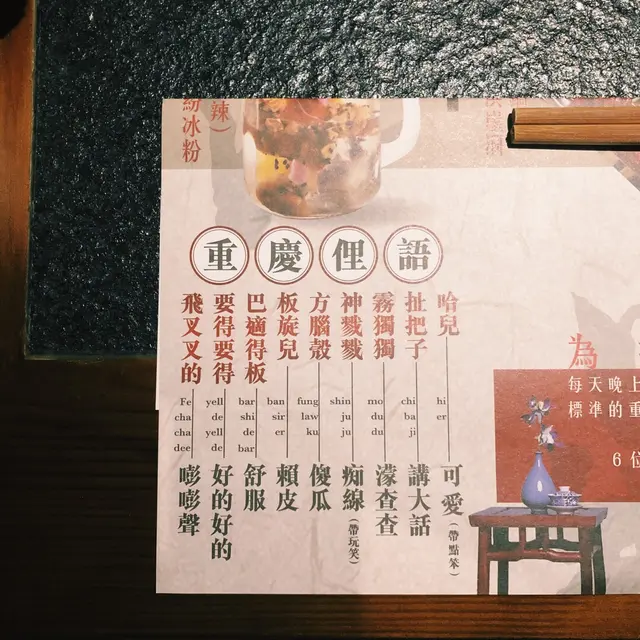 辣）
紛冰粉
重慶俚語
哈兒 hi er 可愛（帶點笨）
扯把子 chi ba ji 講大話
霧獨獨 mo du du 濛查查
神戳戳 shin ju ju 痴線（帶玩笑）
方腦殼 fung law ku 傻瓜
板旋兒 ban sir er 賴皮
巴適得板 bar shi de bar 舒服
要得要得 yell de yell de 好的好的
飛叉叉的 Fe cha cha dee 嘭嘭聲
為
每天晚上
標準的重
6 位